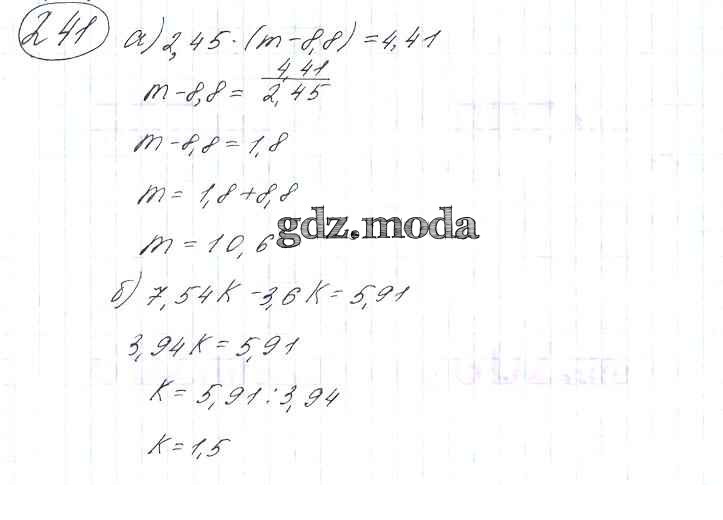 241 а) 2,45 · (m - 8,8) = 4,41
m - 8,8 = 4,41 / 2,45
m - 8,8 = 1,8
m = 1,8 + 8,8
m = 10,6 gdz.moda
б) 7,54к - 3,6к = 5,91
3,94к = 5,91
к = 5,91 : 3,94
к = 1,5